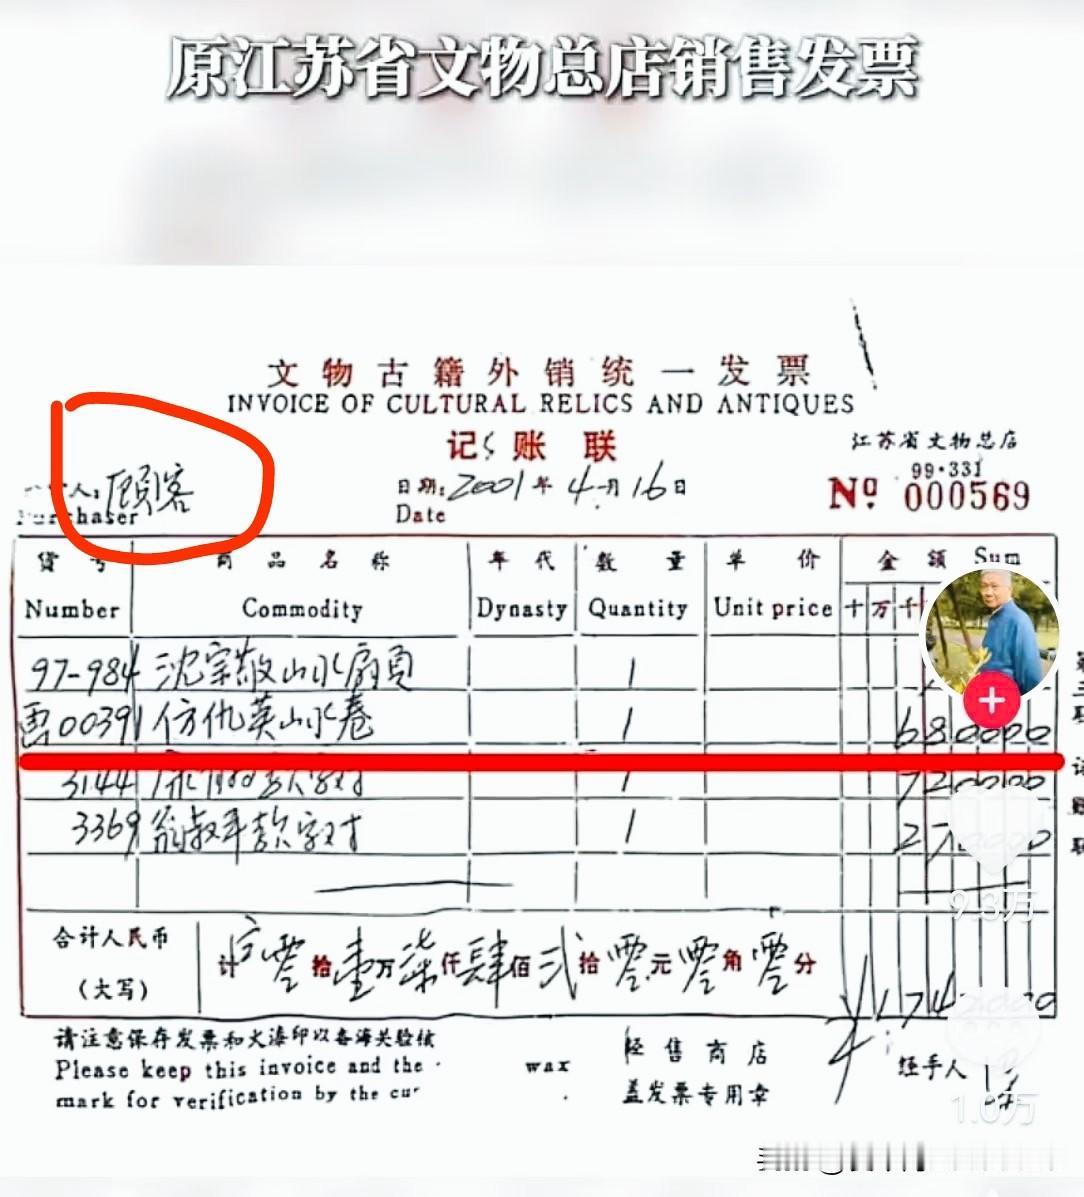 原江苏省文物总店销售发票
文物古籍外销统一发票
INVOICE OF CULTURAL RELICS AND ANTIQUES
记账联
江苏省文物总店
99·331
人：顾客
日期：2001年4月16日
Nº 000569
Purchaser
Date
货号 商品名称 年代 数量 单价 金额 Sum
Number Commodity Dynasty Quantity Unit price 十万千
97-984 沈宗敬山水扇页 1
画00391 仿仇英山水卷 1 680000
3144 1 720000
3369 翁叔平款字对 1 270000
9.3万
合计人民币
（大写）
计 零拾壹万柒仟肆佰贰拾零元零角零分
174
请注意保存发票和火漆印以备海关验核
Please keep this invoice and the wax
mark for verification by the
经售商店
盖发票专用章
经手人
1.0万